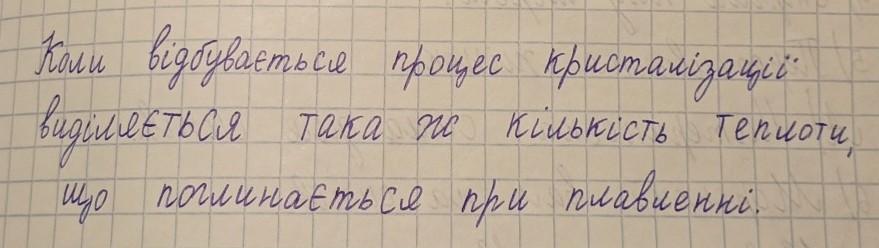 Коли відбувається процес кристалізації
виділяється така ж кількість теплоти,
що поглинається при плавленні.